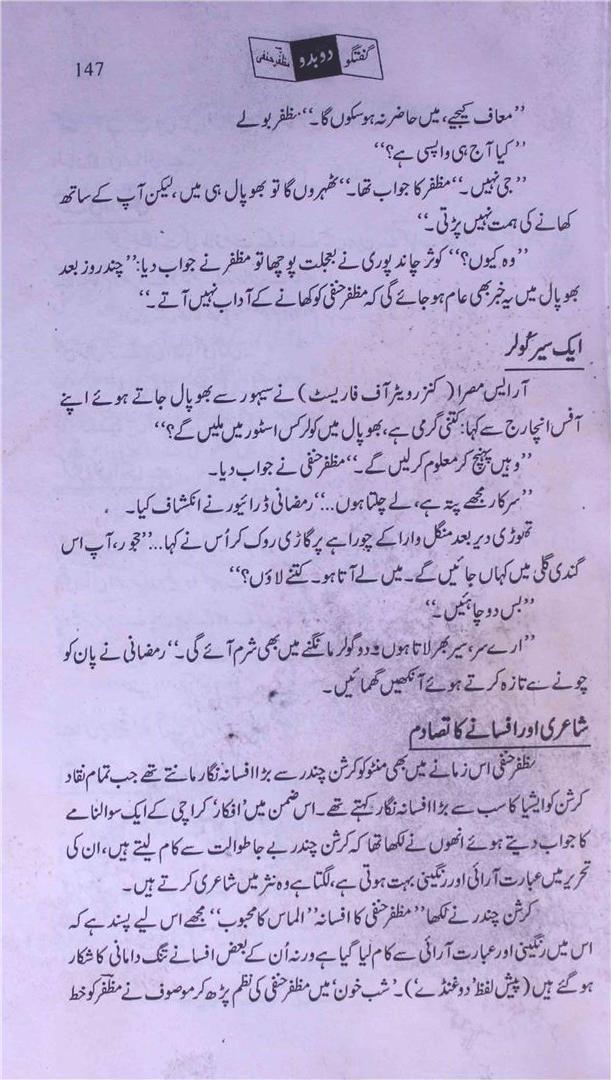 147
گفتگو دوبدو مظفر حنفی
”معاف کیجیے، میں حاضر نہ ہوسکوں گا۔“ مظفر بولے
”کیا آج ہی واپسی ہے؟“
”جی نہیں۔“ مظفر کا جواب تھا۔ ”ٹھہروں گا تو بھوپال ہی میں، لیکن آپ کے ساتھ
کھانے کی ہمت نہیں پڑتی۔“
”وہ کیوں؟“ کوثر چاند پوری نے بعجلت پوچھا تو مظفر نے جواب دیا: ”چند روز بعد
بھوپال میں یہ خبر بھی عام ہو جائے گی کہ مظفر حنفی کو کھانے کے آداب نہیں آتے۔“
ایک سیر گولر
آر ایس مصرا (کنزرویٹر آف فاریسٹ) نے سیہور سے بھوپال جاتے ہوئے اپنے
آفس انچارج سے کہا: کتنی گرمی ہے، بھوپال میں کولر کس اسٹور میں ملیں گے؟“
”وہیں پہنچ کر معلوم کرلیں گے۔“ مظفر حنفی نے جواب دیا۔
”سرکار مجھے پتہ ہے، لے چلتا ہوں...“ رمضانی ڈرائیور نے انکشاف کیا۔
تھوڑی دیر بعد منگل وارا کے چوراہے پر گاڑی روک کر اُس نے کہا...”حجور، آپ اس
گندی گلی میں کہاں جائیں گے۔ میں لے آتا ہو۔ کتنے لاؤں؟“
”بس دو چاہئیں۔“
”ارے سر، سیر بھر لاتا ہوں۔ دو گولر مانگنے میں بھی شرم آئے گی۔“ رمضانی نے پان کو
چونے سے تازہ کرتے ہوئے آنکھیں گھمائیں۔
شاعری اور افسانے کا تصادم
مظفر حنفی اس زمانے میں بھی منٹو کو کرشن چندر سے بڑا افسانہ نگار مانتے تھے جب تمام نقاد
کرشن کو ایشیا کا سب سے بڑا افسانہ نگار کہتے تھے۔ اس ضمن میں ’افکار‘ کراچی کے ایک سوالنامے
کا جواب دیتے ہوئے انھوں نے لکھا تھا کہ کرشن چندر بے جا طوالت سے کام لیتے ہیں، ان کی
تحریر میں عبارت آرائی اور رنگینی بہت ہوتی ہے، لگتا ہے وہ نثر میں شاعری کرتے ہیں۔
کرشن چندر نے لکھا ”مظفر حنفی کا افسانہ ”الماس کا محبوب“ مجھے اس لیے پسند ہے کہ
اس میں رنگینی اور عبارت آرائی سے کام لیا گیا ہے ورنہ اُن کے بعض افسانے تنگ دامانی کا شکار
ہو گئے ہیں (پیش لفظ ’دو غنڈے‘)۔ ’شب خون‘ میں مظفر حنفی کی نظم پڑھ کر موصوف نے مظفر کو خط